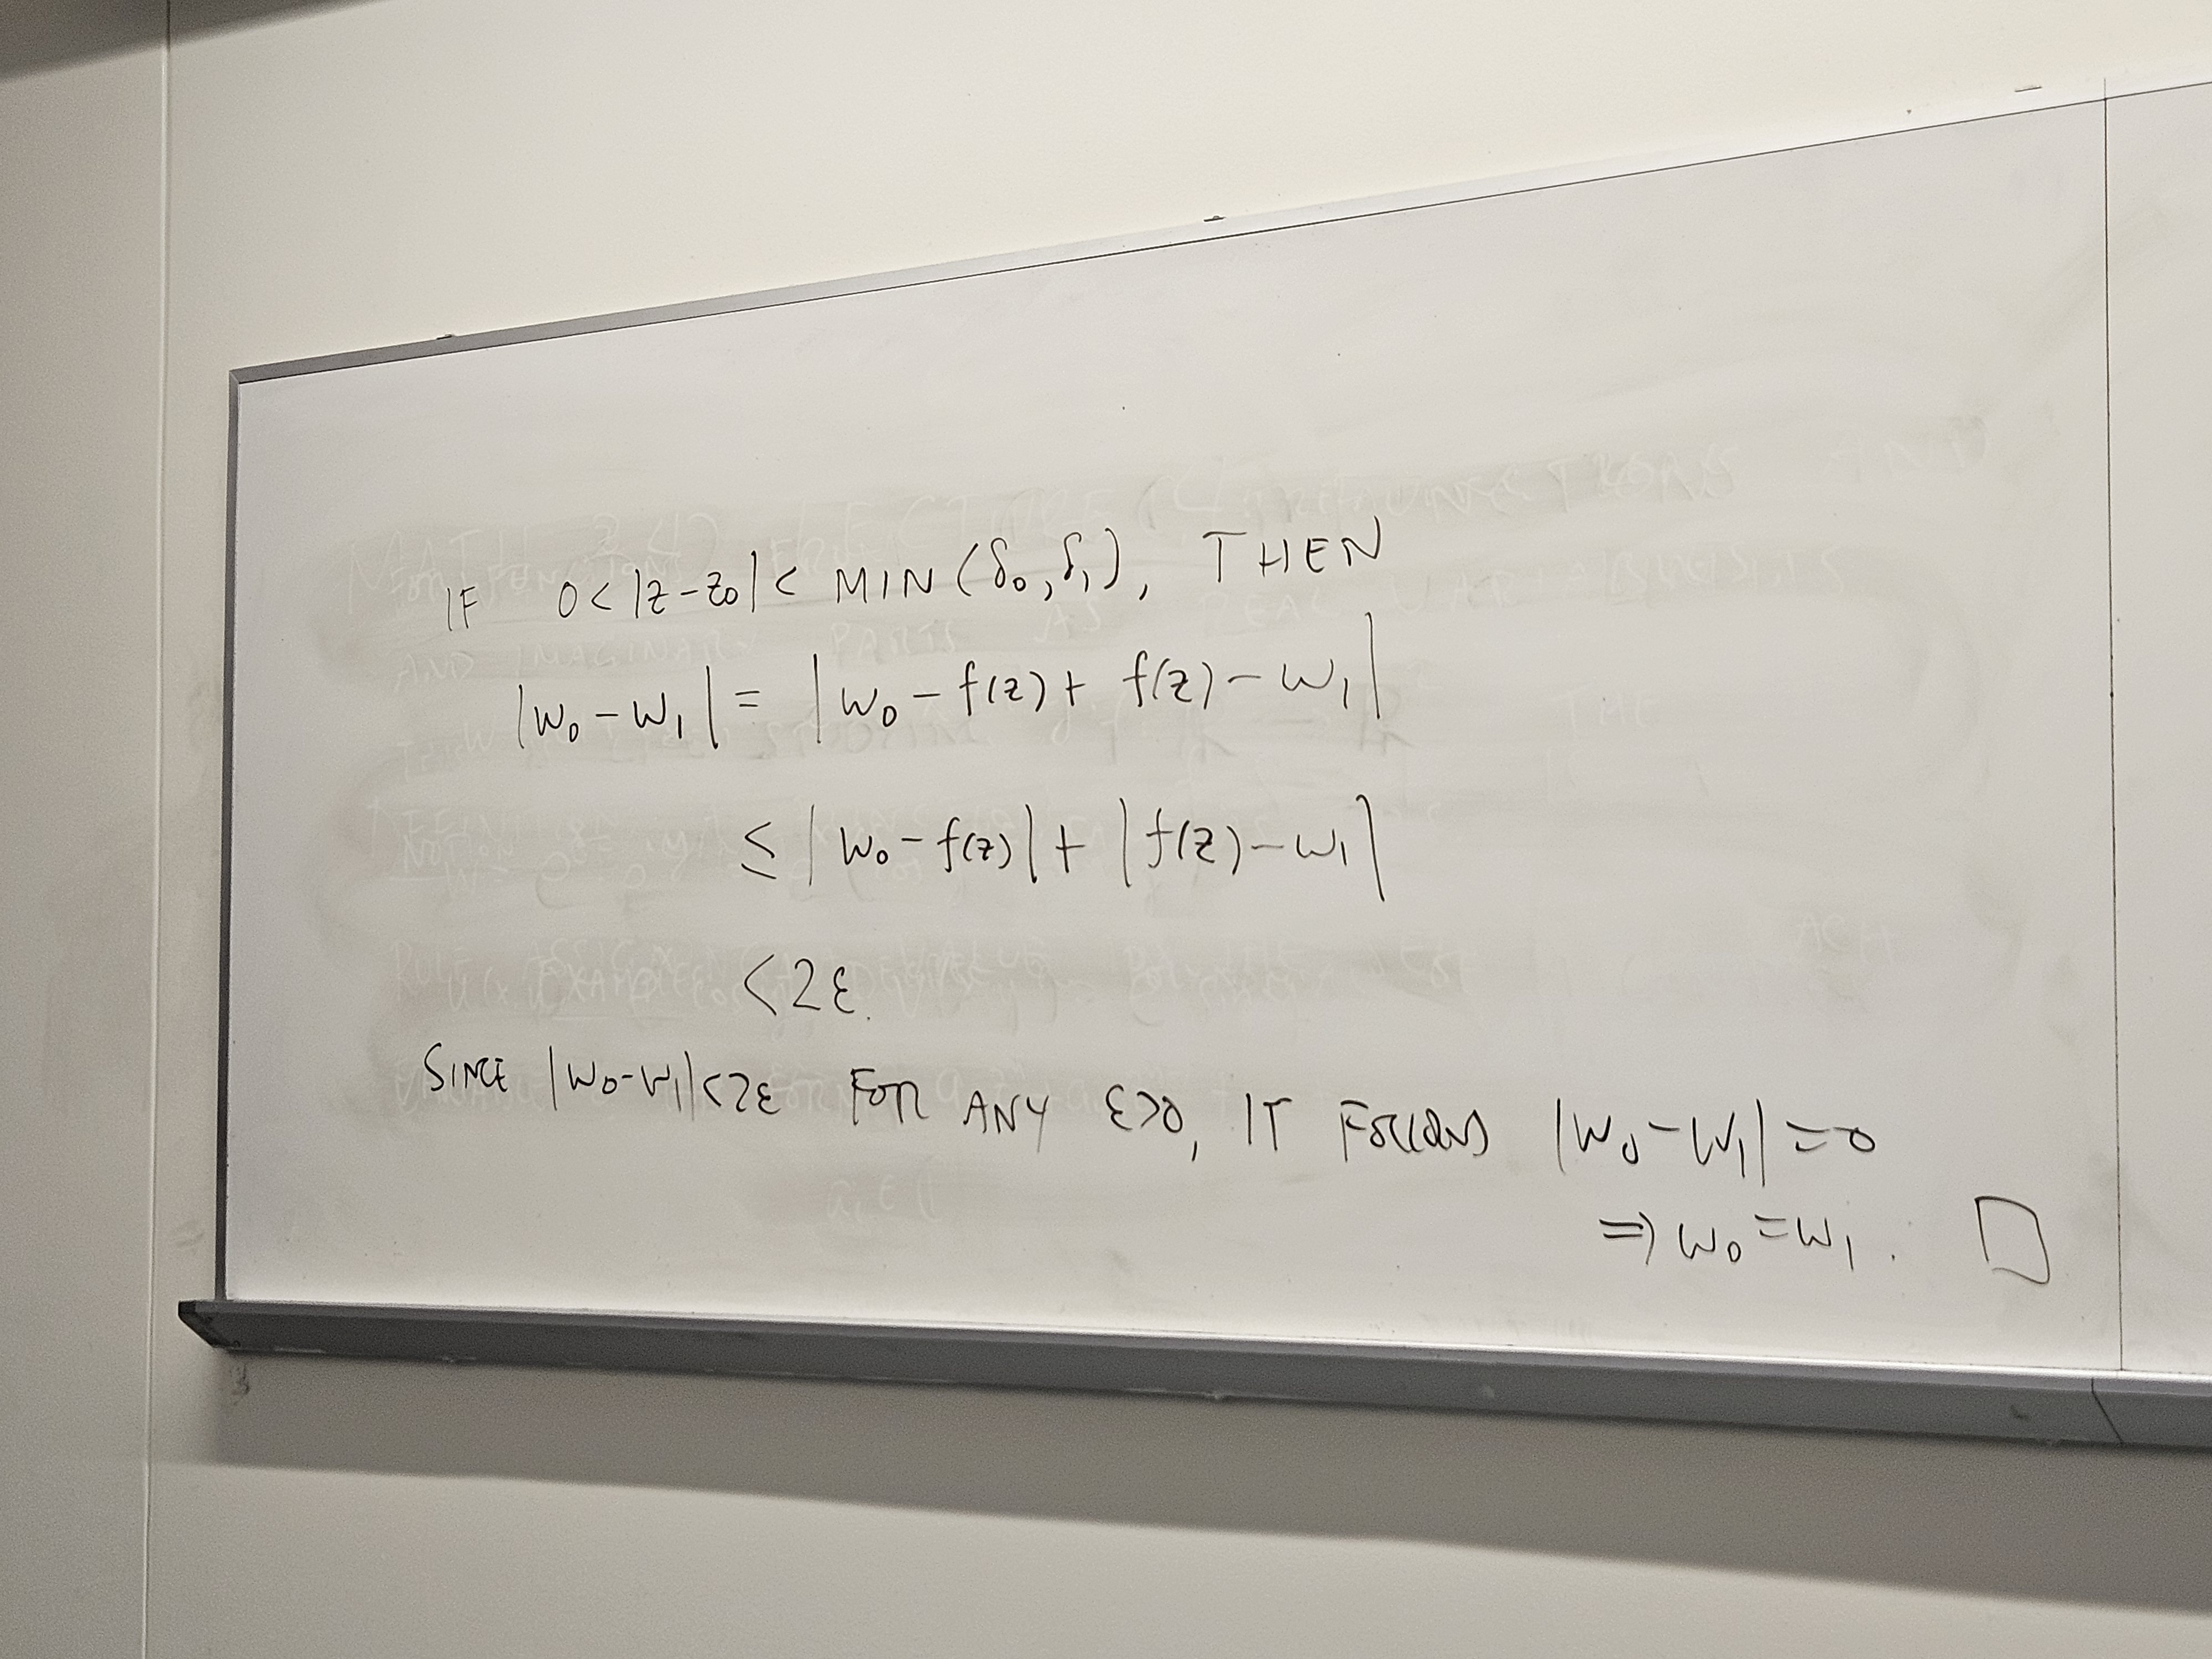 IF 0 < |z - z₀| < MIN (δ₀, δ₁), THEN
|w₀ - w₁| = |w₀ - f(z) + f(z) - w₁|
≤ |w₀ - f(z)| + |f(z) - w₁|
< 2ε.
SINCE |w₀ - w₁| < 2ε FOR ANY ε>0, IT FOLLOWS |w₀ - w₁| = 0
⇒ w₀ = w₁. □